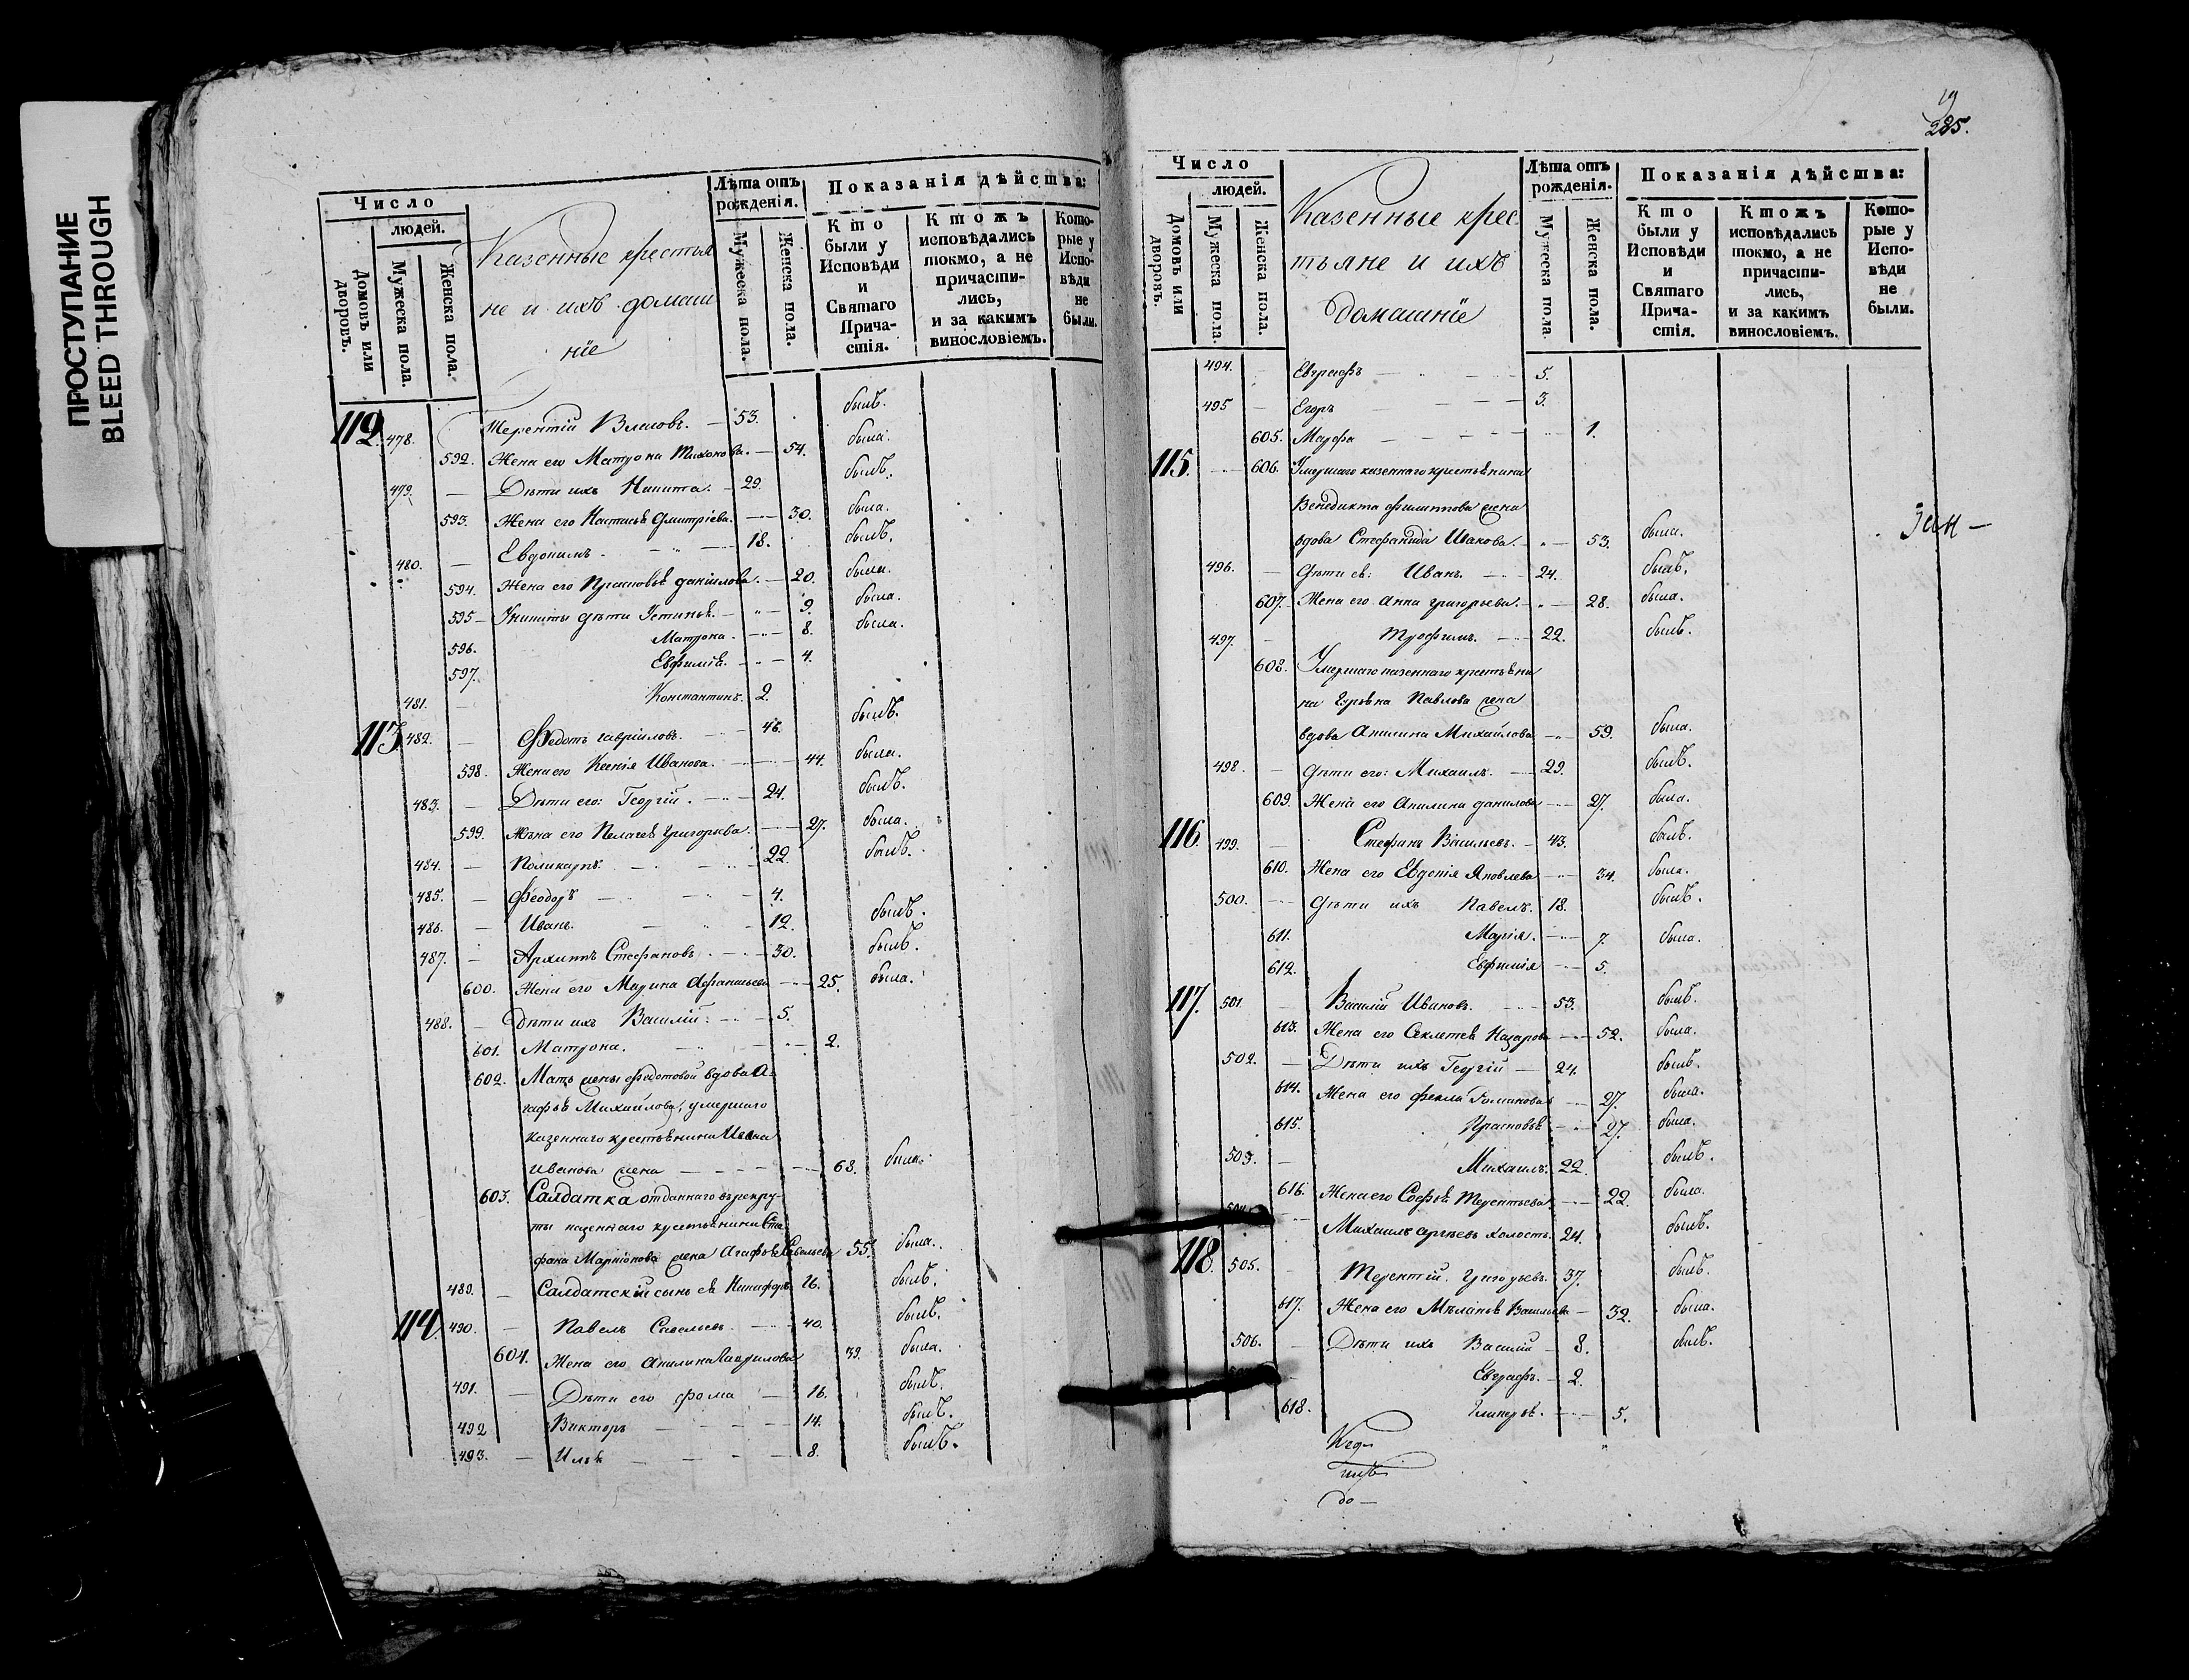 ПРОСТУПАНИЕ
BLEED THROUGH
Число
людей.
Домовъ или дворовъ.
Мужеска пола.
Женска пола.
Казенные крестья
не и ихъ домаш
ніе
Лѣта отъ рожденія.
Мужеска пола.
Женска пола.
Показанія дѣйства:
Кто были у Исповѣди и Святаго Причастія.
Ктожъ исповѣдались токмо, а не причастились, и за какимъ винословіемъ.
Которые у Исповѣди не были.
112. 478. Терентій Власовъ. — 53. былъ.
592. Жена его Матрона Тихонова. — 54. была.
479. — Дѣти ихъ Никита. — 29. былъ.
593. Жена его Настасья Дмитріева. — 30. была.
480. — Евдокимъ. — 18. былъ.
594. Жена его Прасковья Даніилова. — 20. была.
595 — Никиты дѣти Устинья. — 9. была.
596. Матрона. — 8. была.
597. Евфимія. — 4.
481. — Константинъ. 2.
113. 482. — Федотъ Гавріиловъ. — 46. былъ.
598. Жена его Ксенія Иванова. — 44. была.
483. — Дѣти его: Георгій. — 24. былъ.
599. Жена его Пелагея Григорьева. — 27. была.
484. — Поликарпъ. — 22. былъ.
485. — Феодоръ — 4.
486. — Иванъ. — 12. былъ.
487. — Архиппъ Стефановъ. — 30. былъ.
600. Жена его Марина Афанасьева — 25. была.
488. — Дѣти ихъ Василій. — 5.
601. Матрона. — 2.
602. Мать жены Федотовой вдова А-
гафья Михайлова, умершаго
казеннаго крестьянина Ивана
Иванова жена — 63. была.
603. Салдатка отданнаго въ рекру-
ты казеннаго крестьянина Сте
фана жена Агафья Савельева 55. была.
489. — Салдатскій сынъ ея Никифоръ 26. былъ.
114. 490. — Павелъ Савельевъ. — 40. былъ.
604. Жена его Акилина Гаврилова 39. была.
491. — Дѣти его Фома — 16. былъ.
492 Викторъ — 14. былъ.
493. — Илья — 8. былъ.
19
285.
Число
людей.
Домовъ или дворовъ.
Мужеска пола.
Женска пола.
Казенные крес-
тьяне и ихъ
домашніе
Лѣта отъ рожденія.
Мужеска пола.
Женска пола.
Показанія дѣйства:
Кто были у Исповѣди и Святаго Причастія.
Ктожъ исповѣдались токмо, а не причастились, и за какимъ винословіемъ.
Которые у Исповѣди не были.
494. — Евграфъ — 5.
495 — Егоръ — 3.
605. Марфа — 1.
115. — 606. Умершаго казеннаго крестьянина
Венедикта Филиппова жена
вдова Стефанида Исакова. — 53. была.
496. — Дѣти ея: Иванъ. — 24. былъ.
607. Жена его Анна Григорьева. — 28. была.
497. — Трофимъ. — 22. былъ.
608. Умершаго казеннаго крестьяни
на Павлова жена
вдова Акилина Михайлова — 59. была.
498. — Дѣти его: Михаилъ. — 29. былъ.
609. Жена его Акилина Данилова — 27. была.
116. 499. — Стефанъ Васильевъ. — 43. былъ.
610. Жена его Евдокія Яковлева — 34. была.
500. — Дѣти ихъ Павелъ. 18. былъ.
611. Марія. — 7. была.
612. Евфимія — 5.
117. 501. — Василій Ивановъ. — 53. былъ.
613. Жена его Секлетея Назарова — 52. была.
502. — Дѣти ихъ Георгій — 24. былъ.
614. Жена его Фекла Романова — 27. была.
615. Прасковья — 27. была.
503. — Михаилъ. 22. былъ.
616. Жена его Софья Терентьева — 22. была.
504. — Михаилъ Сергѣевъ холостъ. 24. былъ.
118. 505. — Терентій Григорьевъ. 37. былъ.
617. Жена его Меланья Васильева — 32. была.
506. — Дѣти ихъ Василій — 8. былъ.
Евграфъ. — 2.
618. Гликерья. — 5.